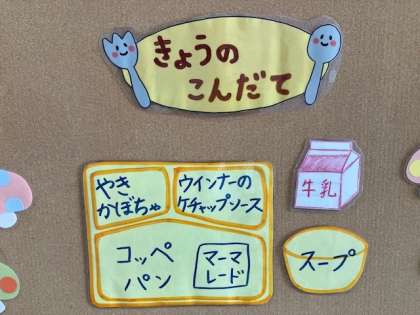 きょうの
こんだて
やき
かぼちゃ
ウインナーの
ケチャップソース
牛乳
コッペ
パン
マーマ
レード
スープ